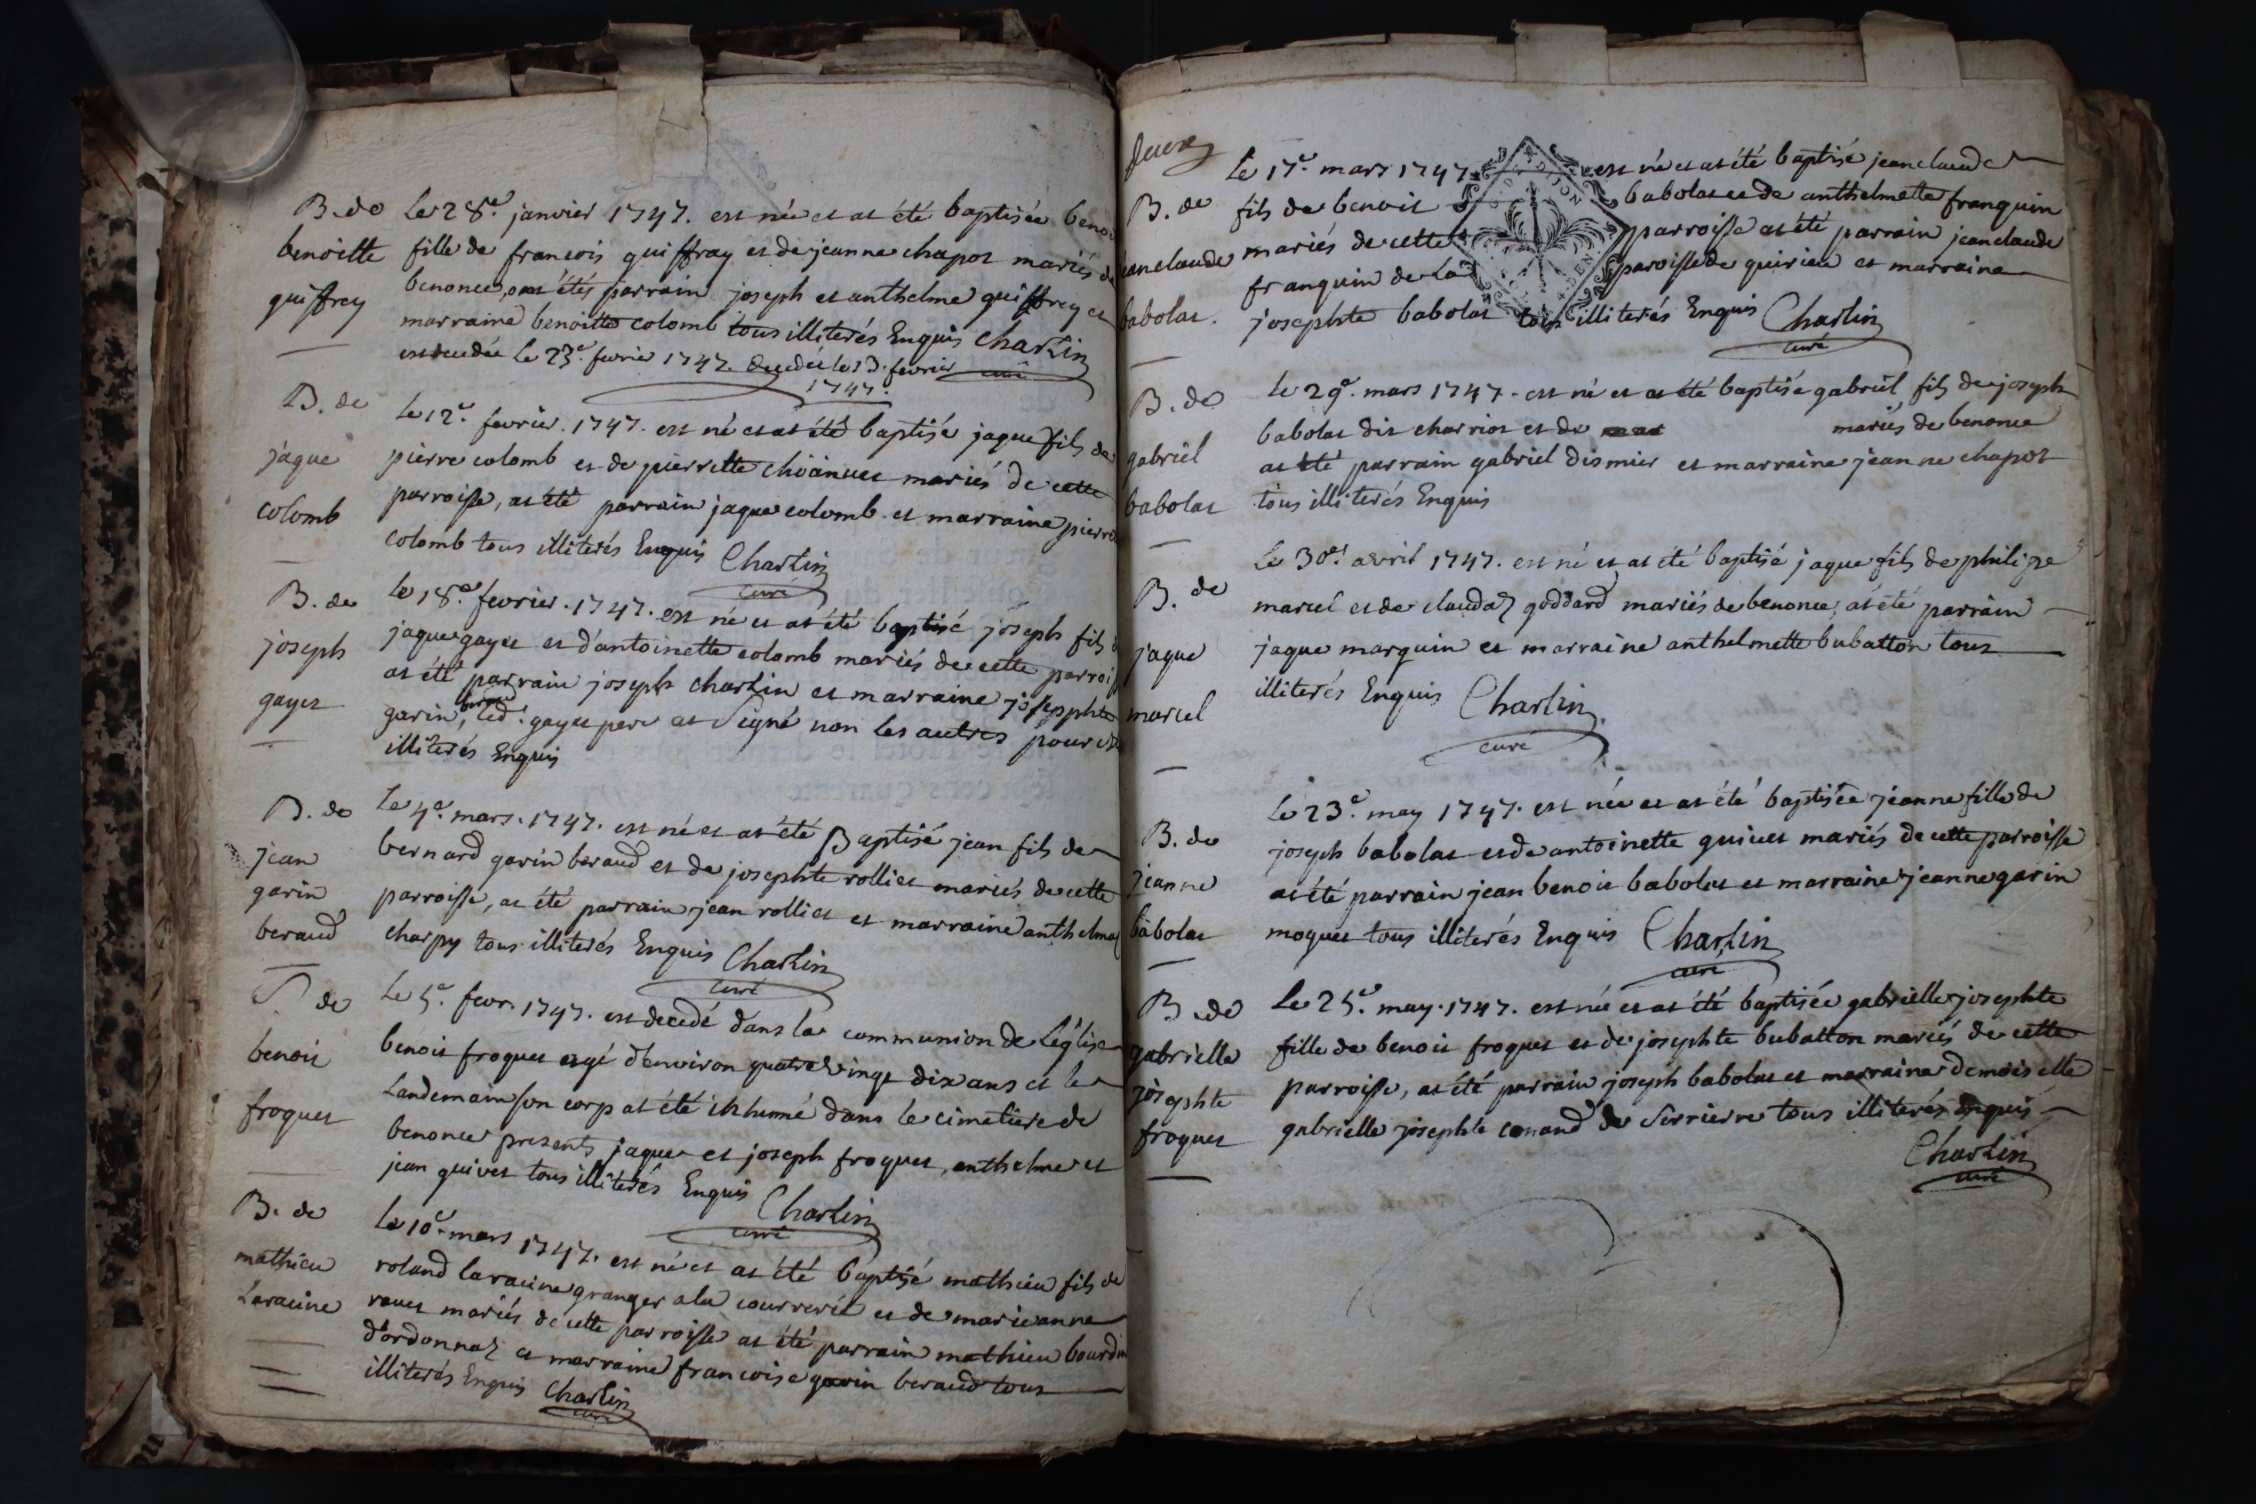 B. de
benoitte
guiffrey
Le 28e. janvier 1747. est née et at été baptisée
fille de francois guiffray et de jeanne chapot mariés de
benonce, ont étés parrain joseph et anthelme guiffrey et
marraine benoitte colomb tous illiterés Enquis Charlin
est decedée le 23e. fevrier 1747. decedée le 23. fevrier curé
1747.
B. de
jaque
colomb
le 12e. fevrier. 1747. est né et at été baptisé jaque fils de
pierre colomb et de pierrette mariés de cette
parroisse, at été parrain jaque colomb et marraine
colomb tous illiterés Enquis Charlin
curé
B. de
joseph
gayet
le 18e. fevrier. 1747. est né et at été baptisé joseph fils
jaque gayet et d'antoinette colomb mariés de cette
at été parrain joseph charlin et marraine josephte
garin, led. gayet pere at signé non les autres pour
illiterés Enquis
B. de
jean
garin
beraud
Le 4e. mars. 1747. est né et at été Baptisé jean fils de
bernard garin beraud et de josephte rolliet mariés de cette
parroisse, at été parrain jean rolliet et marraine
charpy tous illiterés Enquis Charlin
curé
de
benoit
froquet
Le 5e. 1747. est decedé dans la communion de Léglise
benoit froquet agé d'environ quatre vingt dix ans et le
Landemain son corp at été ihhumé dans le cimetiere de
benonce presents jaque et joseph froquet, anthelme et
jean quivet tous illiterés Enquis Charlin
curé
B. de
mathieu
Laracine
le 10e. mars 1747. est né et at été baptisé mathieu fils de
roland laracine granger ala courrerie et de marieanne
mariés de cette parroisse at été parrain mathieu
d'ordonnaz et marraine francoise garin beraud tous
illiterés Enquis Charlin
curé
B. de
jeanclaude
babolat.
Le 17e. mars 1747. est né et at été baptisé jeanclaude
fils de benoit babolat et de anthelmette franquin
mariés de cette parroisse at été parrain jeanclaude
franquin de La paroisse de quirieu et marraine
josephte babolat tous illiterés Enquis Charlin
curé
B. de
gabriel
babolat
le 29e. mars 1747. est né et at été baptisé gabriel fils de joseph
babolat dit charriot et de mariés de benonce
at été parrain gabriel dismier et marraine jeanne chapot
tous illiterés Enquis
B. de
jaque
marcel
Le 30e. avril 1747. est né et at été baptisé jaque fils de philipe
marcel et de claudaz goddard mariés de benonce, at été parrain
jaque marquin et marraine anthelmette bubatton tous
illiterés Enquis Charlin
curé
B. de
jeanne
babolat
Le 23e. may 1747. est née et at été baptisée jeanne fille de
joseph babolat et de antoinette quivet mariés de cette parroisse
at été parrain jean benoit babolat et marraine jeanne garin
moquet tous illiterés Enquis Charlin
curé
B. de
gabrielle
josephte
froquet
Le 25e. may. 1747. est née et at été baptisée gabrielle josephte
fille de benoit froquet et de josephte bubatton mariés de cette
parroisse, at été parrain joseph babolat et marraine demoiselle
gabrielle josephte conand de Serrierre tous illiterés enquis
Charlin
curé